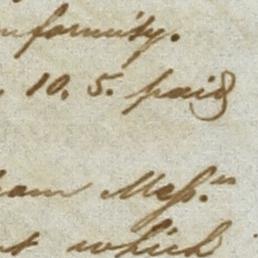 nformity.
10. 5. paid
am Mess.rs
t which